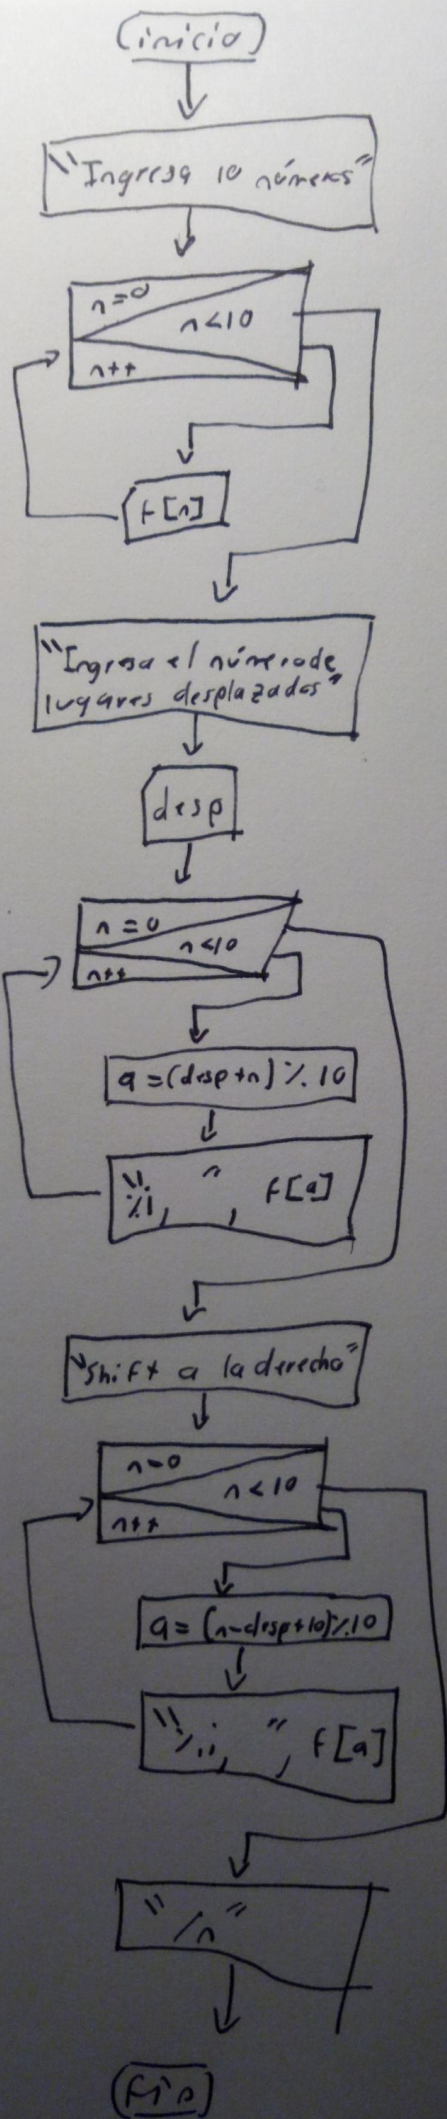 inicio
"Ingresa 10 números"
n=0
n<10
n++
f[n]
"Ingresa el número de
lugares desplazados"
desp
n=0
n<10
n++
a=(desp+n)%10
"%i, ", f[a]
"Shift a la derecha"
n=0
n<10
n++
a=(n-desp+10)%10
"%i, ", f[a]
"/n"
Fin